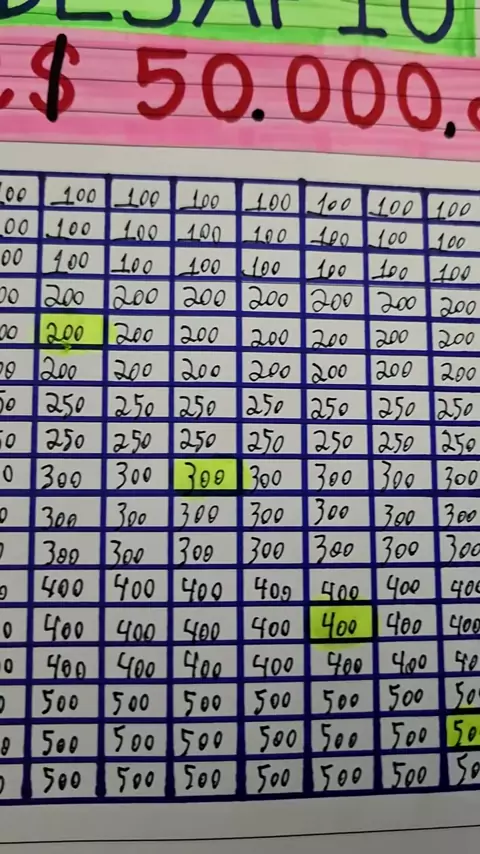 DESAFIO
$ 50.000.
00 100 100 100 100 100 100 100
00 100 100 100 100 100 100 100
00 100 100 100 100 100 100 100
00 200 200 200 200 200 200 200
00 200 200 200 200 200 200 200
00 200 200 200 200 200 200 200
50 250 250 250 250 250 250 250
50 250 250 250 250 250 250 250
0 300 300 300 300 300 300 300
0 300 300 300 300 300 300 300
0 300 300 300 300 300 300 300
0 400 400 400 400 400 400 400
0 400 400 400 400 400 400 400
0 400 400 400 400 400 400 40
0 500 500 500 500 500 500 50
0 500 500 500 500 500 500 50
0 500 500 500 500 500 500 50